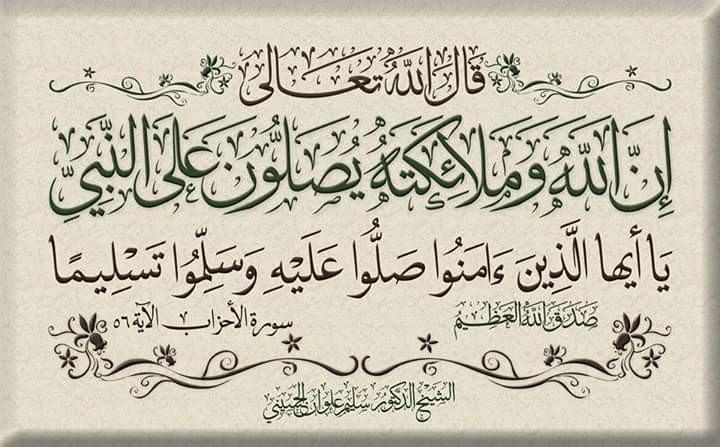 قَالَ اللهُ تَعَالَى
إِنَّ اللهَ وَمَلَائِكَتَهُ يُصَلُّونَ عَلَى النَّبِيِّ
يَا أَيُّهَا الَّذِينَ ءَامَنُوا صَلُّوا عَلَيْهِ وَسَلِّمُوا تَسْلِيمًا
صَدَقَ اللهُ الْعَظِيمُ سورة الأحزاب الآية ٥٦
الشيخ الدكتور سليم علوان الحسيني